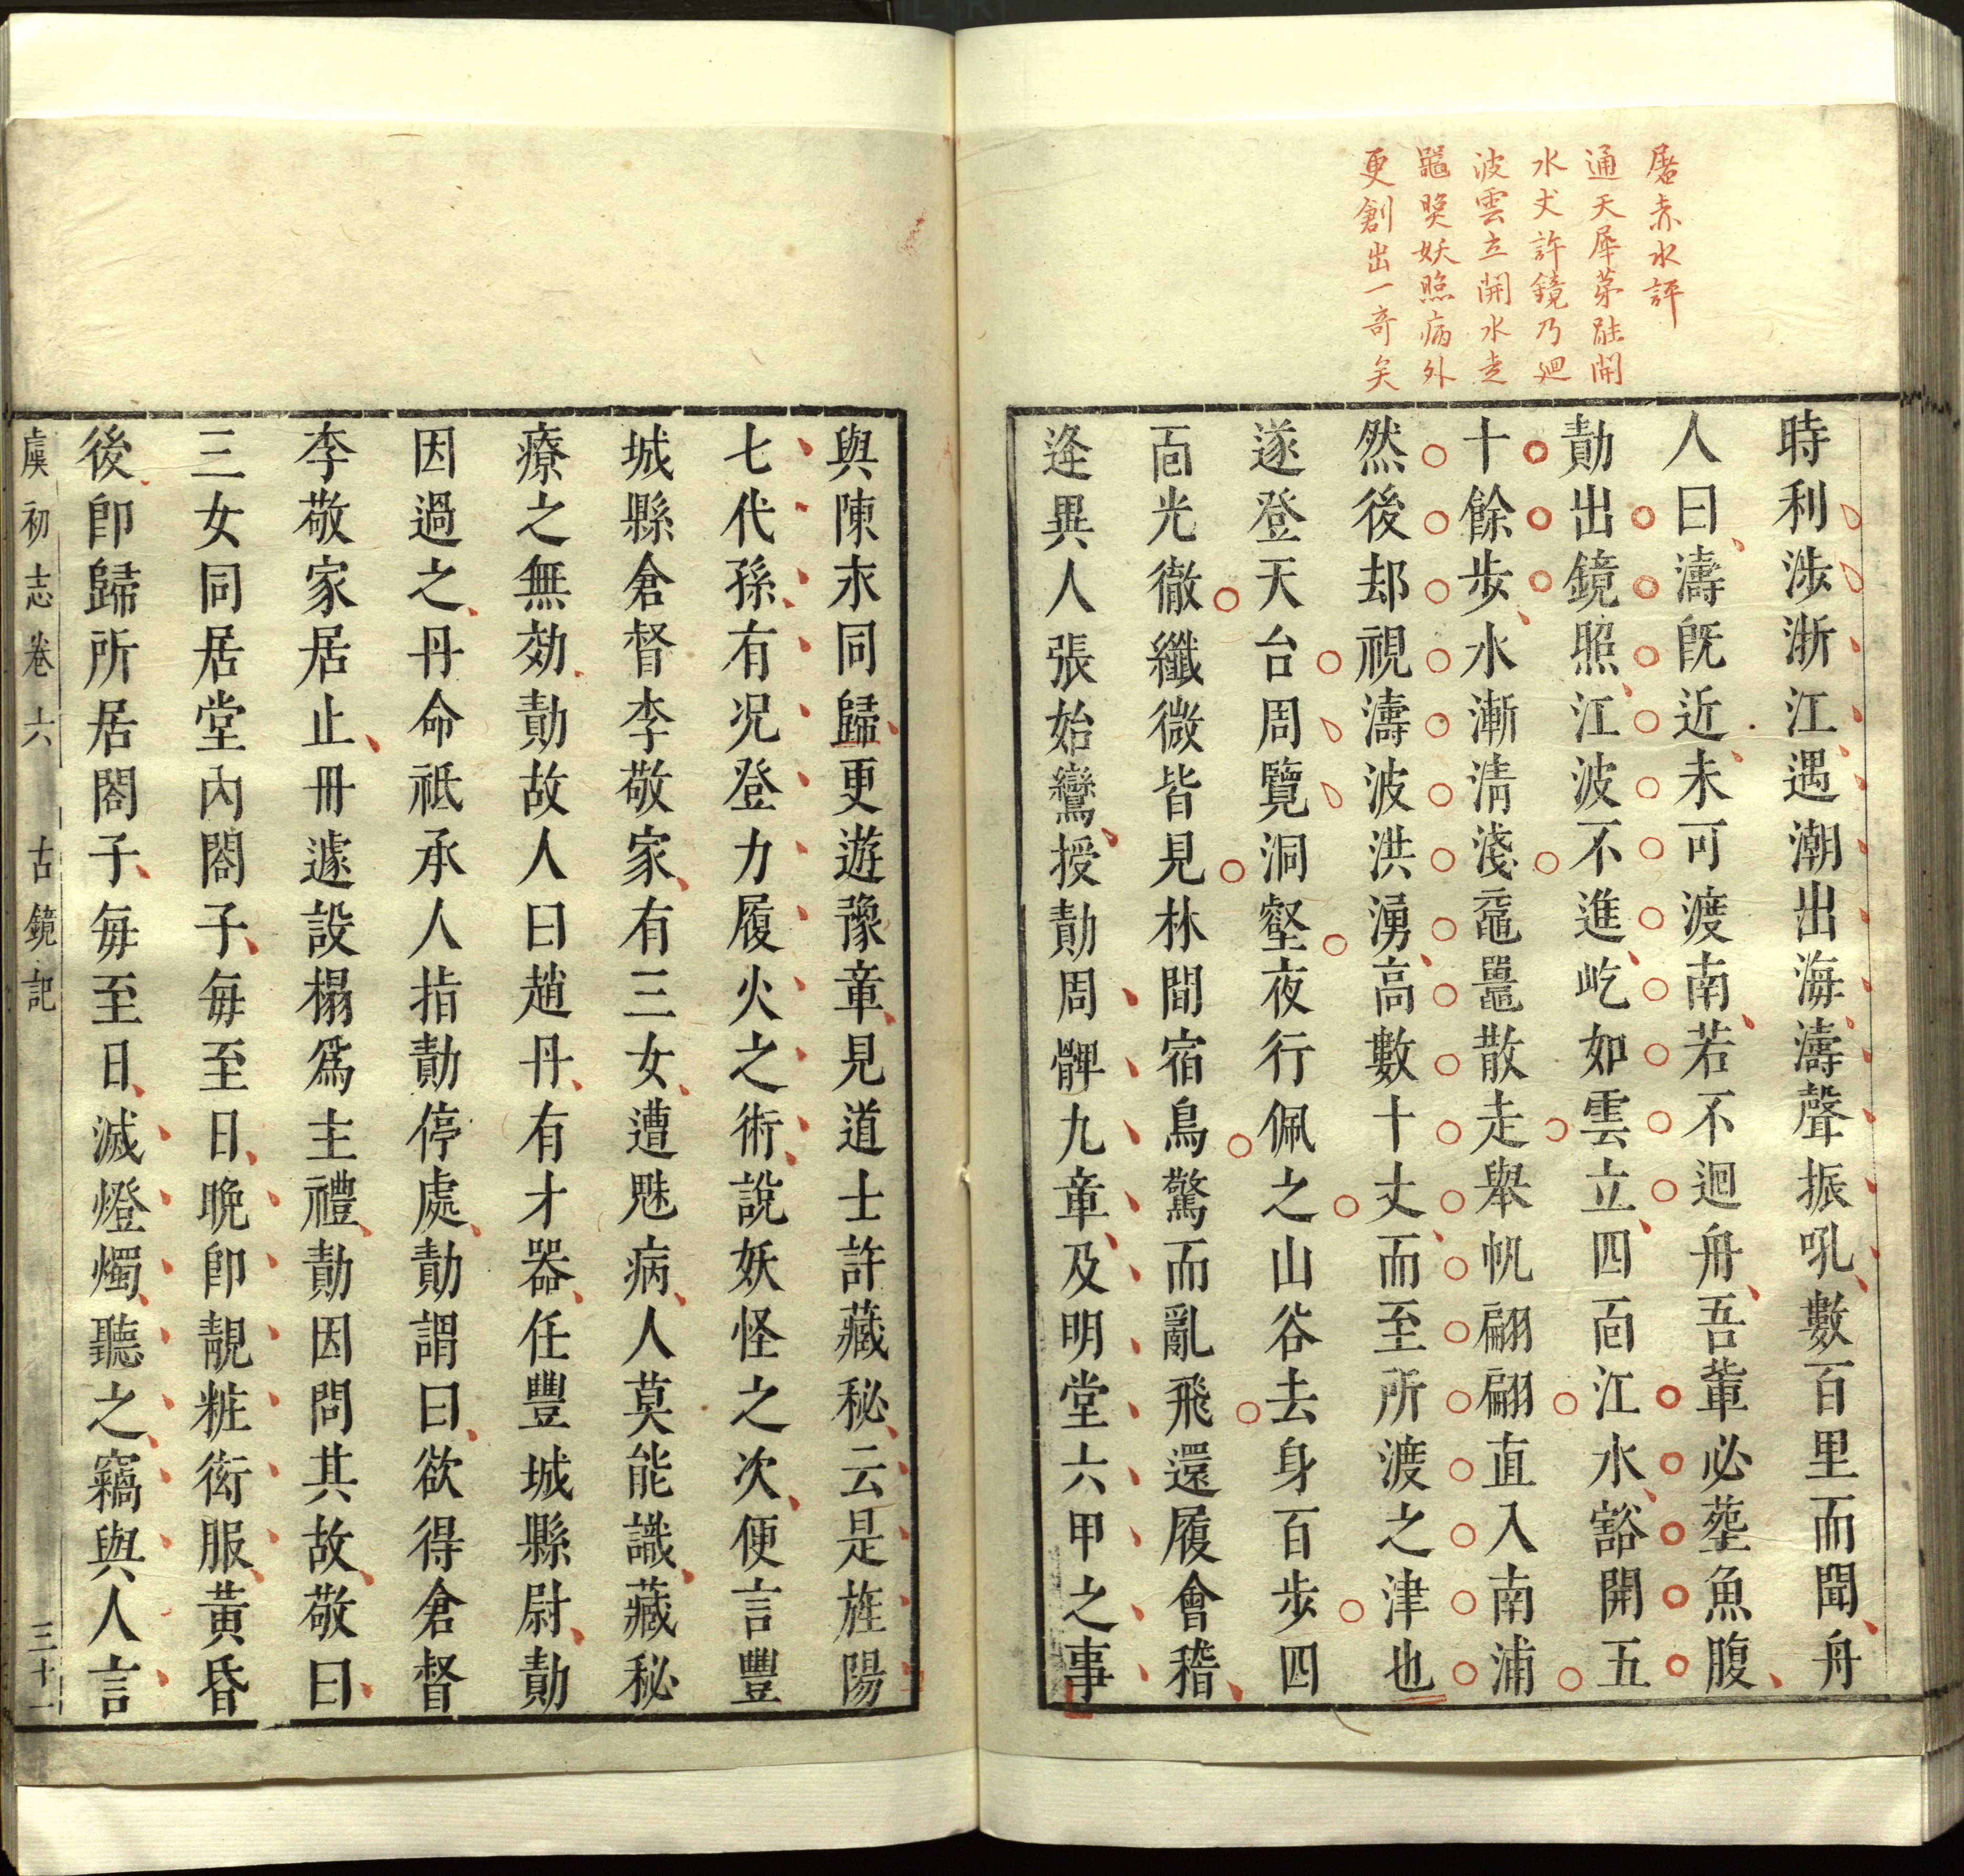 屠赤水評
通天犀茅能開
水丈許鏡乃廻
波雲立開水走
黿照妖照病外
更創出一奇矣
時利涉浙江遇潮出海濤聲振吼數百里而聞舟
人曰濤旣近未可渡南若不迴舟吾輩必葬魚腹
勣出鏡照江波不進屹如雲立四面江水豁開五
十餘步水漸淸淺黿鼉散走舉帆翩翩直入南浦
然後却視濤波洪湧高數十丈而至所渡之津也
遂登天台周覽洞壑夜行佩之山谷去身百步四
面光徹纖微皆見林間宿鳥驚而亂飛還履會稽
逢異人張始鸞授勣周髀九章及明堂六甲之事
與陳永同歸更遊豫章見道士許藏秘云是旌陽
七代孫有况登力履火之術說妖怪之次便言豐
城縣倉督李敬家有三女遭魅病人莫能識藏秘
療之無効勣故人曰趙丹有才器任豐城縣尉勣
因過之丹命祇承人指勣停處勣謂曰欲得倉督
李敬家居止丹遽設榻爲主禮勣因問其故敬曰
三女同居堂內閤子每至日晚卽靚粧衒服黃昏
後卽歸所居閤子每至日滅燈燭聽之竊與人言
虞初志卷六 古鏡記 三十一